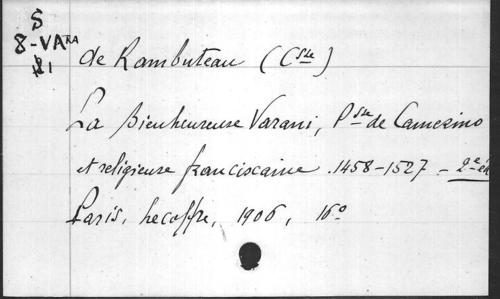 S
8-VARA
21
de Rambuteau (Csse)
La Bienheureuse Varani, Psse de Camerino
et religieuse franciscaine. 1458-1527 - 2e éd
Paris, Lecoffre, 1906, 16°